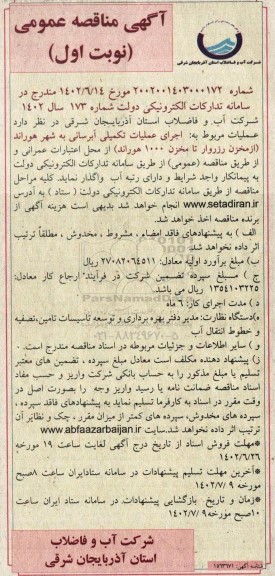 آگهی مناقصه عمومی
(نوبت اول)
شرکت آب و فاضلاب استان آذربایجان شرقی
شماره ۲۰۰۲۰۰۱۴۰۳۰۰۰۱۷۲ مورخ ۱۴۰۲/۶/۱۴ مندرج در
سامانه تدارکات الکترونیکی دولت شماره ۱۷۳ سال ۱۴۰۲
شرکت آب و فاضلاب استان آذربایجان شرقی در نظر دارد
عملیات مربوط به: اجرای عملیات تکمیلی آبرسانی به شهر هوراند
(ازمخزن رزروار تا مخزن ۱۰۰۰ هوراند) از محل اعتبارات عمرانی و
از طریق مناقصه (عمومی) از طریق سامانه تدارکات الکترونیکی دولت
به پیمانکار واجد شرایط و دارای رتبه آب واگذار نماید. کلیه مراحل
مناقصه از طریق سامانه تدارکات الکترونیکی دولت ( ستاد ) به آدرس
www.setadiran.ir انجام خواهد شد بدیهی است هزینه آگهی از
برنده مناقصه اخذ خواهد شد.
الف ) به پیشنهادهای فاقد امضاء ، مشروط ، مخدوش ، مطلقاً ترتیب
اثر داده نخواهد شد
ب) مبلغ برآورد اولیه معادل: ۲۷۰۸۲۰۶۴۵۱۱ ریال
ج ) مبلغ سپرده تضمین شرکت در فرآیند ارجاع کار معادل:
۱۳۵۴۱۰۳۲۲۵ ریال می باشد.
د ) مدت اجرای کار: ۶ ماه
ه)دستگاه نظارت: مدیر دفتر بهره برداری و توسعه تاسیسات تامین،تصفیه
و خطوط انتقال آب
و ) سایر اطلاعات و جزئیات مربوطه در اسناد مناقصه مندرج است.
ز) پیشنهاد دهنده مکلف است معادل مبلغ سپرده ، تضمین های معتبر
تسلیم یا مبلغ مذکور را به حساب بانکی شرکت واریز و حسب مفاد
اسناد مناقصه ضمانت نامه یا رسید واریز وجه را بصورت اصل در
وقت مقرر در اسناد به کارفرما تسلیم نماید به پیشنهادهای فاقد سپرده ،
سپرده های مخدوش، سپرده های کمتر از میزان مقرر ، چک و نظایر آن
ترتیب اثر داده نخواهد شد.سایت www.abfaazarbaijan.ir
*مهلت فروش اسناد از تاریخ درج آگهی لغایت ساعت ۱۹ مورخه
۱۴۰۲/۶/۲۶
*آخرین مهلت تسلیم پیشنهادات در سامانه ستادایران ساعت ۸صبح
مورخه ۱۴۰۲/۷/۹
*زمان و تاریخ بازگشایی پیشنهادات در سامانه ستاد ایران ساعت
۱۰صبح مورخه ۱۴۰۲/۷/۹
شرکت آب و فاضلاب
استان آذربایجان شرقی
شناسه آگهی: